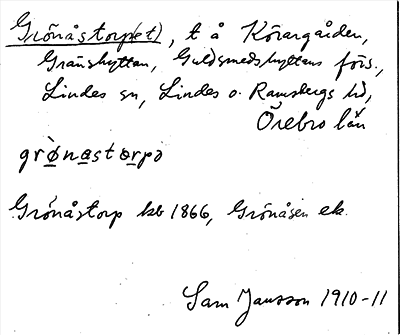 Grönåstorp(et), t å Körargården,
Gränshyttan, Guldsmedshyttans förs.,
Lindes sn, Lindes o. Ramsbergs hd,
Örebro län
grø̀nastorpo
Grönåstorp kb 1866, Grönåsen ek.
Sam Jansson 1910-11